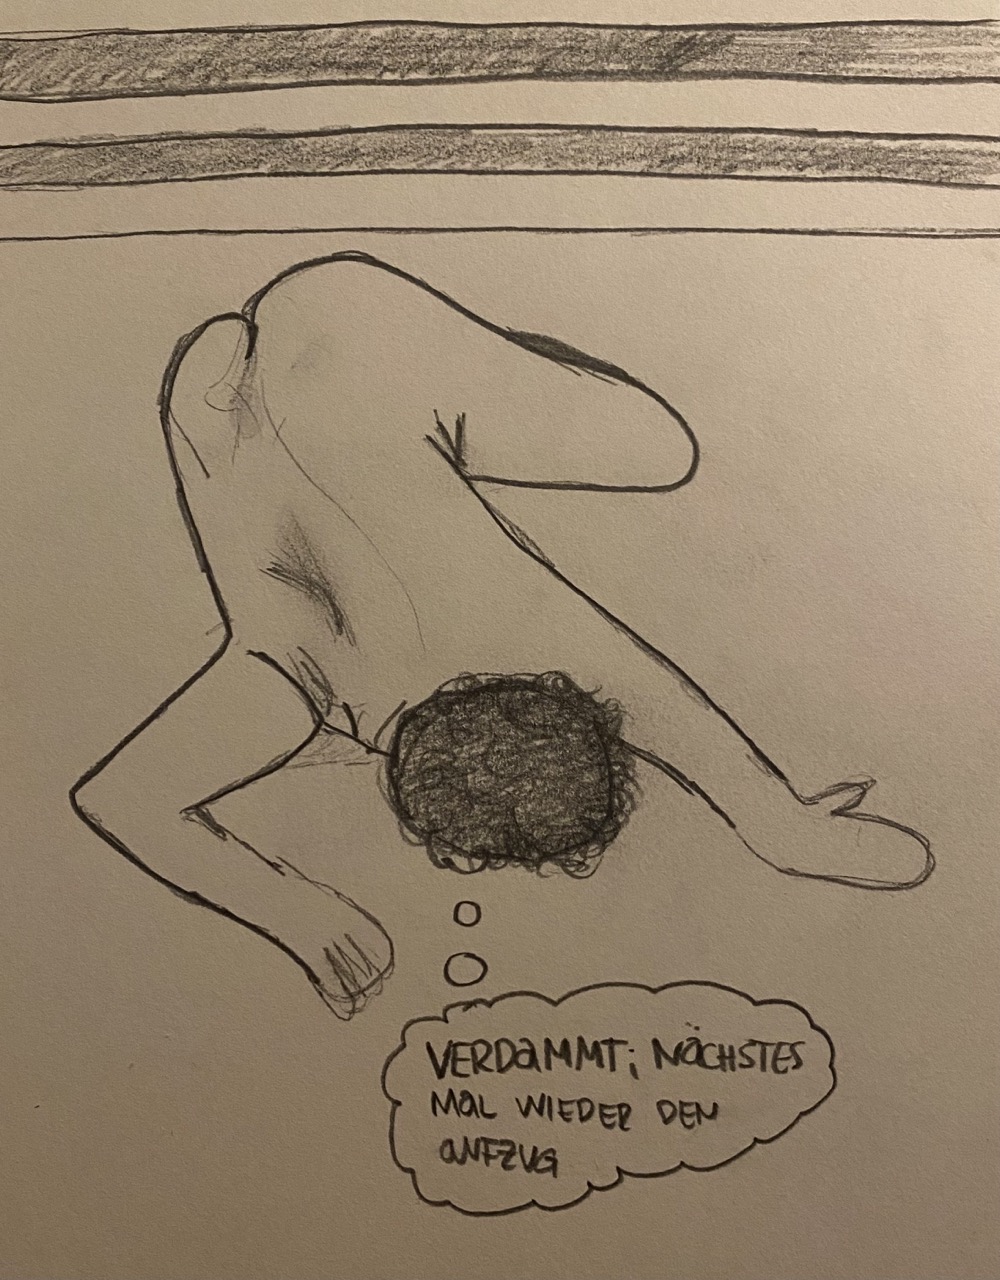 VERDAMMT; NÄCHSTES
MAL WIEDER DEN
AUFZUG